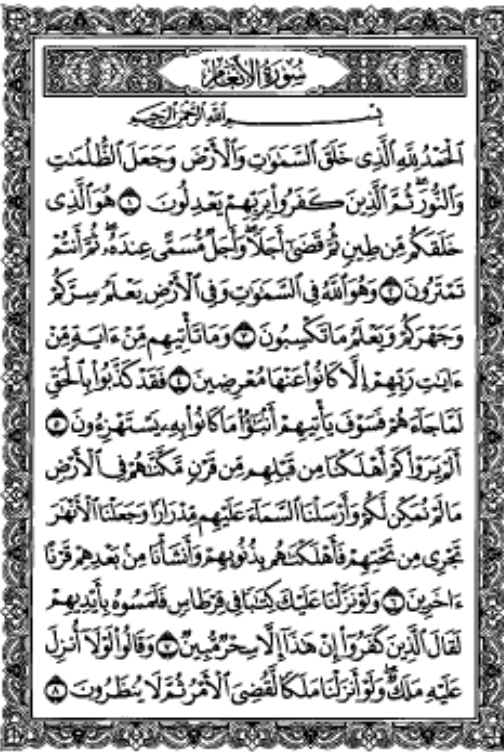 سُورَةُ الأَنْعَامِ
بِسْمِ اللَّهِ الرَّحْمَٰنِ الرَّحِيمِ
ٱلْحَمْدُ لِلَّهِ ٱلَّذِى خَلَقَ ٱلسَّمَٰوَٰتِ وَٱلْأَرْضَ وَجَعَلَ ٱلظُّلُمَٰتِ
وَٱلنُّورَ ۖ ثُمَّ ٱلَّذِينَ كَفَرُوا۟ بِرَبِّهِمْ يَعْدِلُونَ ١ هُوَ ٱلَّذِى
خَلَقَكُم مِّن طِينٍ ثُمَّ قَضَىٰٓ أَجَلًا ۖ وَأَجَلٌ مُّسَمًّى عِندَهُۥ ۖ ثُمَّ أَنتُمْ
تَمْتَرُونَ ٢ وَهُوَ ٱللَّهُ فِى ٱلسَّمَٰوَٰتِ وَفِى ٱلْأَرْضِ يَعْلَمُ سِرَّكُمْ
وَجَهْرَكُمْ وَيَعْلَمُ مَا تَكْسِبُونَ ٣ وَمَا تَأْتِيهِم مِّنْ ءَايَةٍ مِّنْ
ءَايَٰتِ رَبِّهِمْ إِلَّا كَانُوا۟ عَنْهَا مُعْرِضِينَ ٤ فَقَدْ كَذَّبُوا۟ بِٱلْحَقِّ
لَمَّا جَآءَهُمْ فَسَوْفَ يَأْتِيهِمْ أَنۢبَٰٓؤُا۟ مَا كَانُوا۟ بِهِۦ يَسْتَهْزِءُونَ ٥
أَلَمْ يَرَوْا۟ كَمْ أَهْلَكْنَا مِن قَبْلِهِم مِّن قَرْنٍ مَّكَّنَّٰهُمْ فِى ٱلْأَرْضِ
مَا لَمْ نُمَكِّن لَّكُمْ وَأَرْسَلْنَا ٱلسَّمَآءَ عَلَيْهِم مِّدْرَارًا وَجَعَلْنَا ٱلْأَنْهَٰرَ
تَجْرِى مِن تَحْتِهِمْ فَأَهْلَكْنَٰهُم بِذُنُوبِهِمْ وَأَنشَأْنَا مِنۢ بَعْدِهِمْ قَرْنًا
ءَاخَرِينَ ٦ وَلَوْ نَزَّلْنَا عَلَيْكَ كِتَٰبًا فِى قِرْطَاسٍ فَلَمَسُوهُ بِأَيْدِيهِمْ
لَقَالَ ٱلَّذِينَ كَفَرُوٓا۟ إِنْ هَٰذَآ إِلَّا سِحْرٌ مُّبِينٌ ٧ وَقَالُوا۟ لَوْلَآ أُنزِلَ
عَلَيْهِ مَلَكٌ ۖ وَلَوْ أَنزَلْنَا مَلَكًا لَّقُضِىَ ٱلْأَمْرُ ثُمَّ لَا يُنظَرُونَ ٨